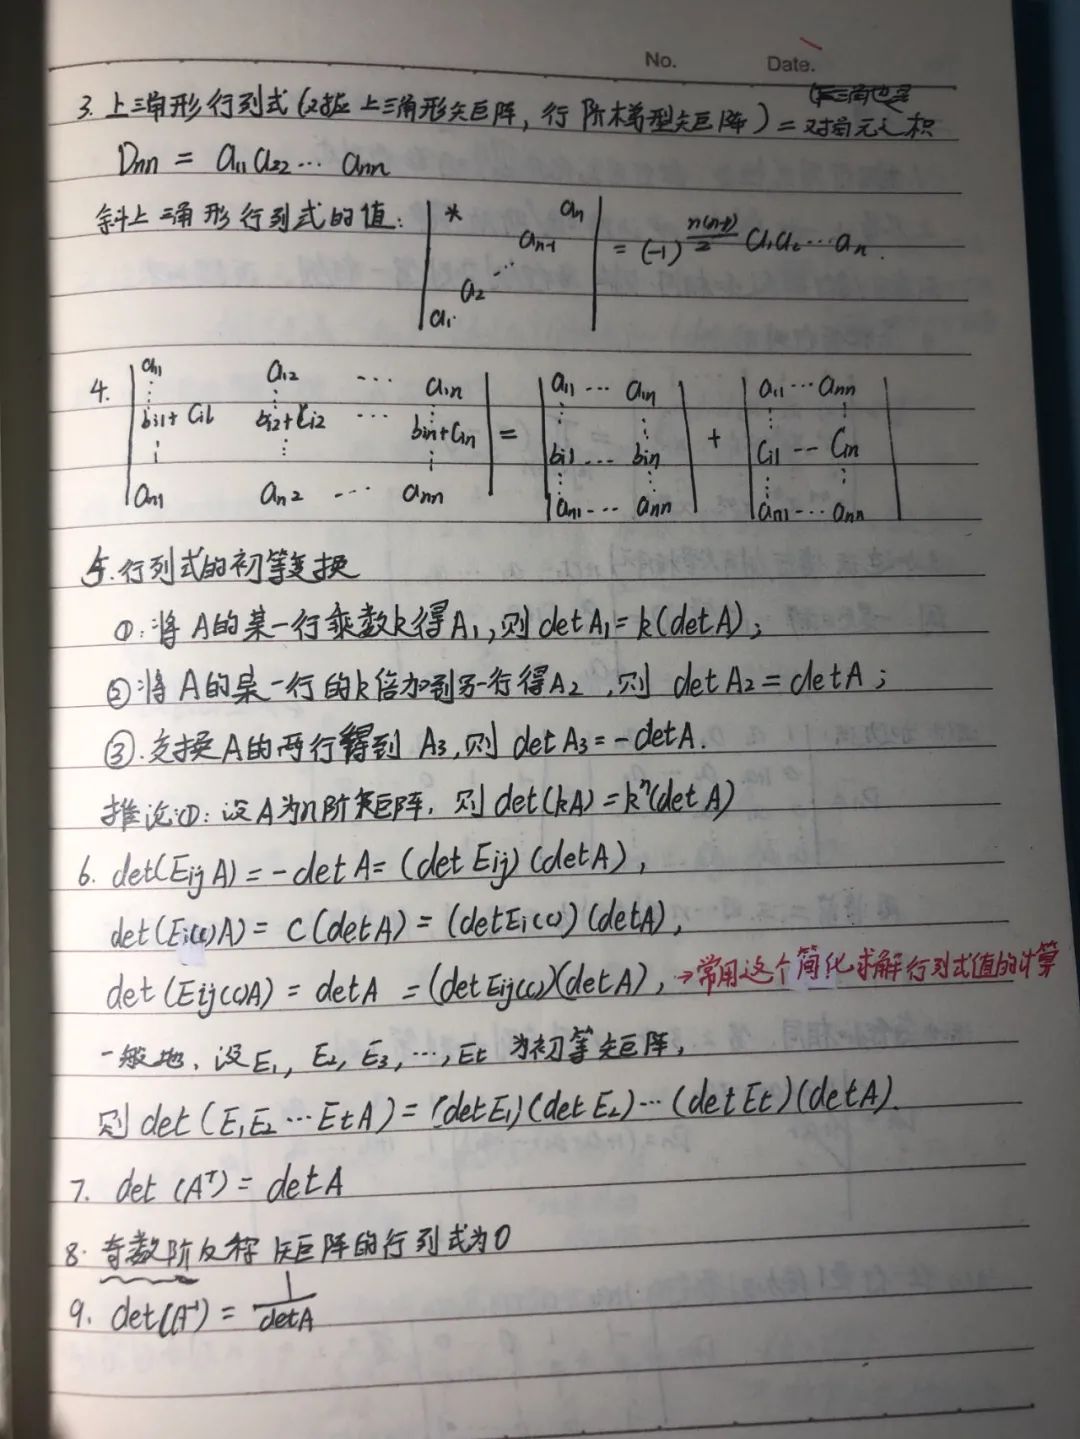 No. Date.
(下三角也是
3.上三角形行列式(对应上三角形矩阵,行阶梯型矩阵)=对角元之积
Dnn = a₁₁a₂₂…ann
斜上三角形行列式的值:
* an
an-1
⋰
a₂
a₁
= (-1)^(n(n-1)/2) a₁a₂…an.
4.
a₁₁ a₁₂ … a₁n
⋮ ⋮
bi1+Ci1 bi2+Ci2 … bin+Cin
⋮ ⋮ ⋮
an1 an2 … ann
=
a₁₁ … a₁n
⋮ ⋮
bi1 … bin
⋮ ⋮
an1 … ann
+
a₁₁ … ann
⋮ ⋮
Ci1 … Cin
⋮ ⋮
an1 … ann
5.行列式的初等变换
①:将A的某一行乘数k得A₁,则detA₁=k(detA);
②将A的某一行的k倍加到另一行得A₂,则 detA₂=detA;
③.交换A的两行得到A₃,则detA₃=-detA.
推论①:设A为n阶矩阵,则det(kA)=kⁿ(detA)
6. det(EijA)=-detA=(detEij)(detA),
det(Ei(c)A)= c(detA)=(detEi(c))(detA),
det(Eij(c)A)= detA =(detEij(c))(detA),→常用这个简化求解行列式值的计算
一般地,设E₁,E₂,E₃,…,Et为初等矩阵,
则det(E₁E₂…EtA)=(detE₁)(detE₂)…(detEt)(detA).
7. det(Aᵀ)=detA
8. 奇数阶反称矩阵的行列式为0
9. det(A⁻¹)= 1/detA